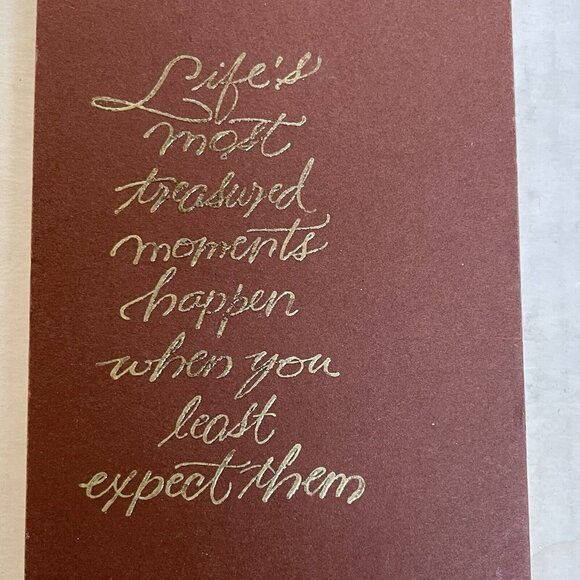 Life's
most
treasured
moments
happen
when you
least
expect them